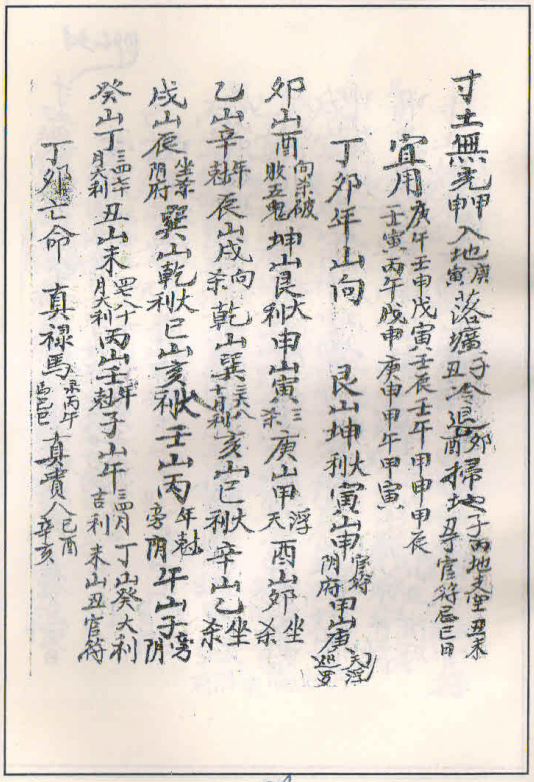 寸土無光甲申入地庚寅落壙子丑冷退卯酉掃地子丙地
宜用庚午壬申戊寅壬辰壬午甲申甲辰
壬寅丙午戊申庚申甲午甲寅
丁卯年山向 艮山坤大利寅山申官符陰府甲山庚天浮
卯山酉向杀破敗五鬼坤山艮大利申山寅三杀庚山甲浮天酉山卯坐杀
乙山辛年尅辰山戌向杀乾山巽亥山巳大利辛山乙坐杀
戌山辰坐杀陰府巽山乾大利巳山亥大利壬山丙年尅旁陰午山子旁陰
癸山丁月大利丑山未月大利丙山壬年尅子山午吉利丁山癸大利未山丑官符
丁卯亡命 真祿馬 真貴人己酉辛亥